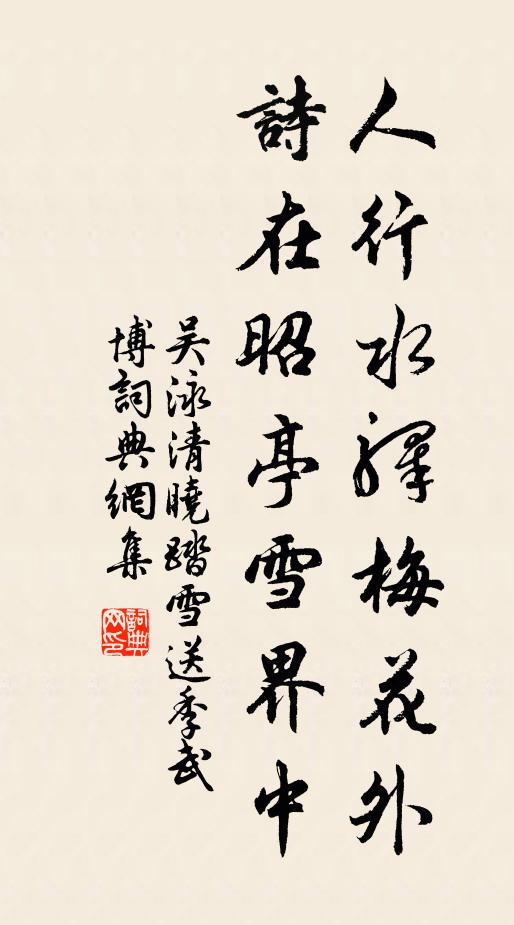 人行水驛梅花外
詩在昭亭雪界中
吴泳清曉踏雪送季武
博詞典網集
詞典网印